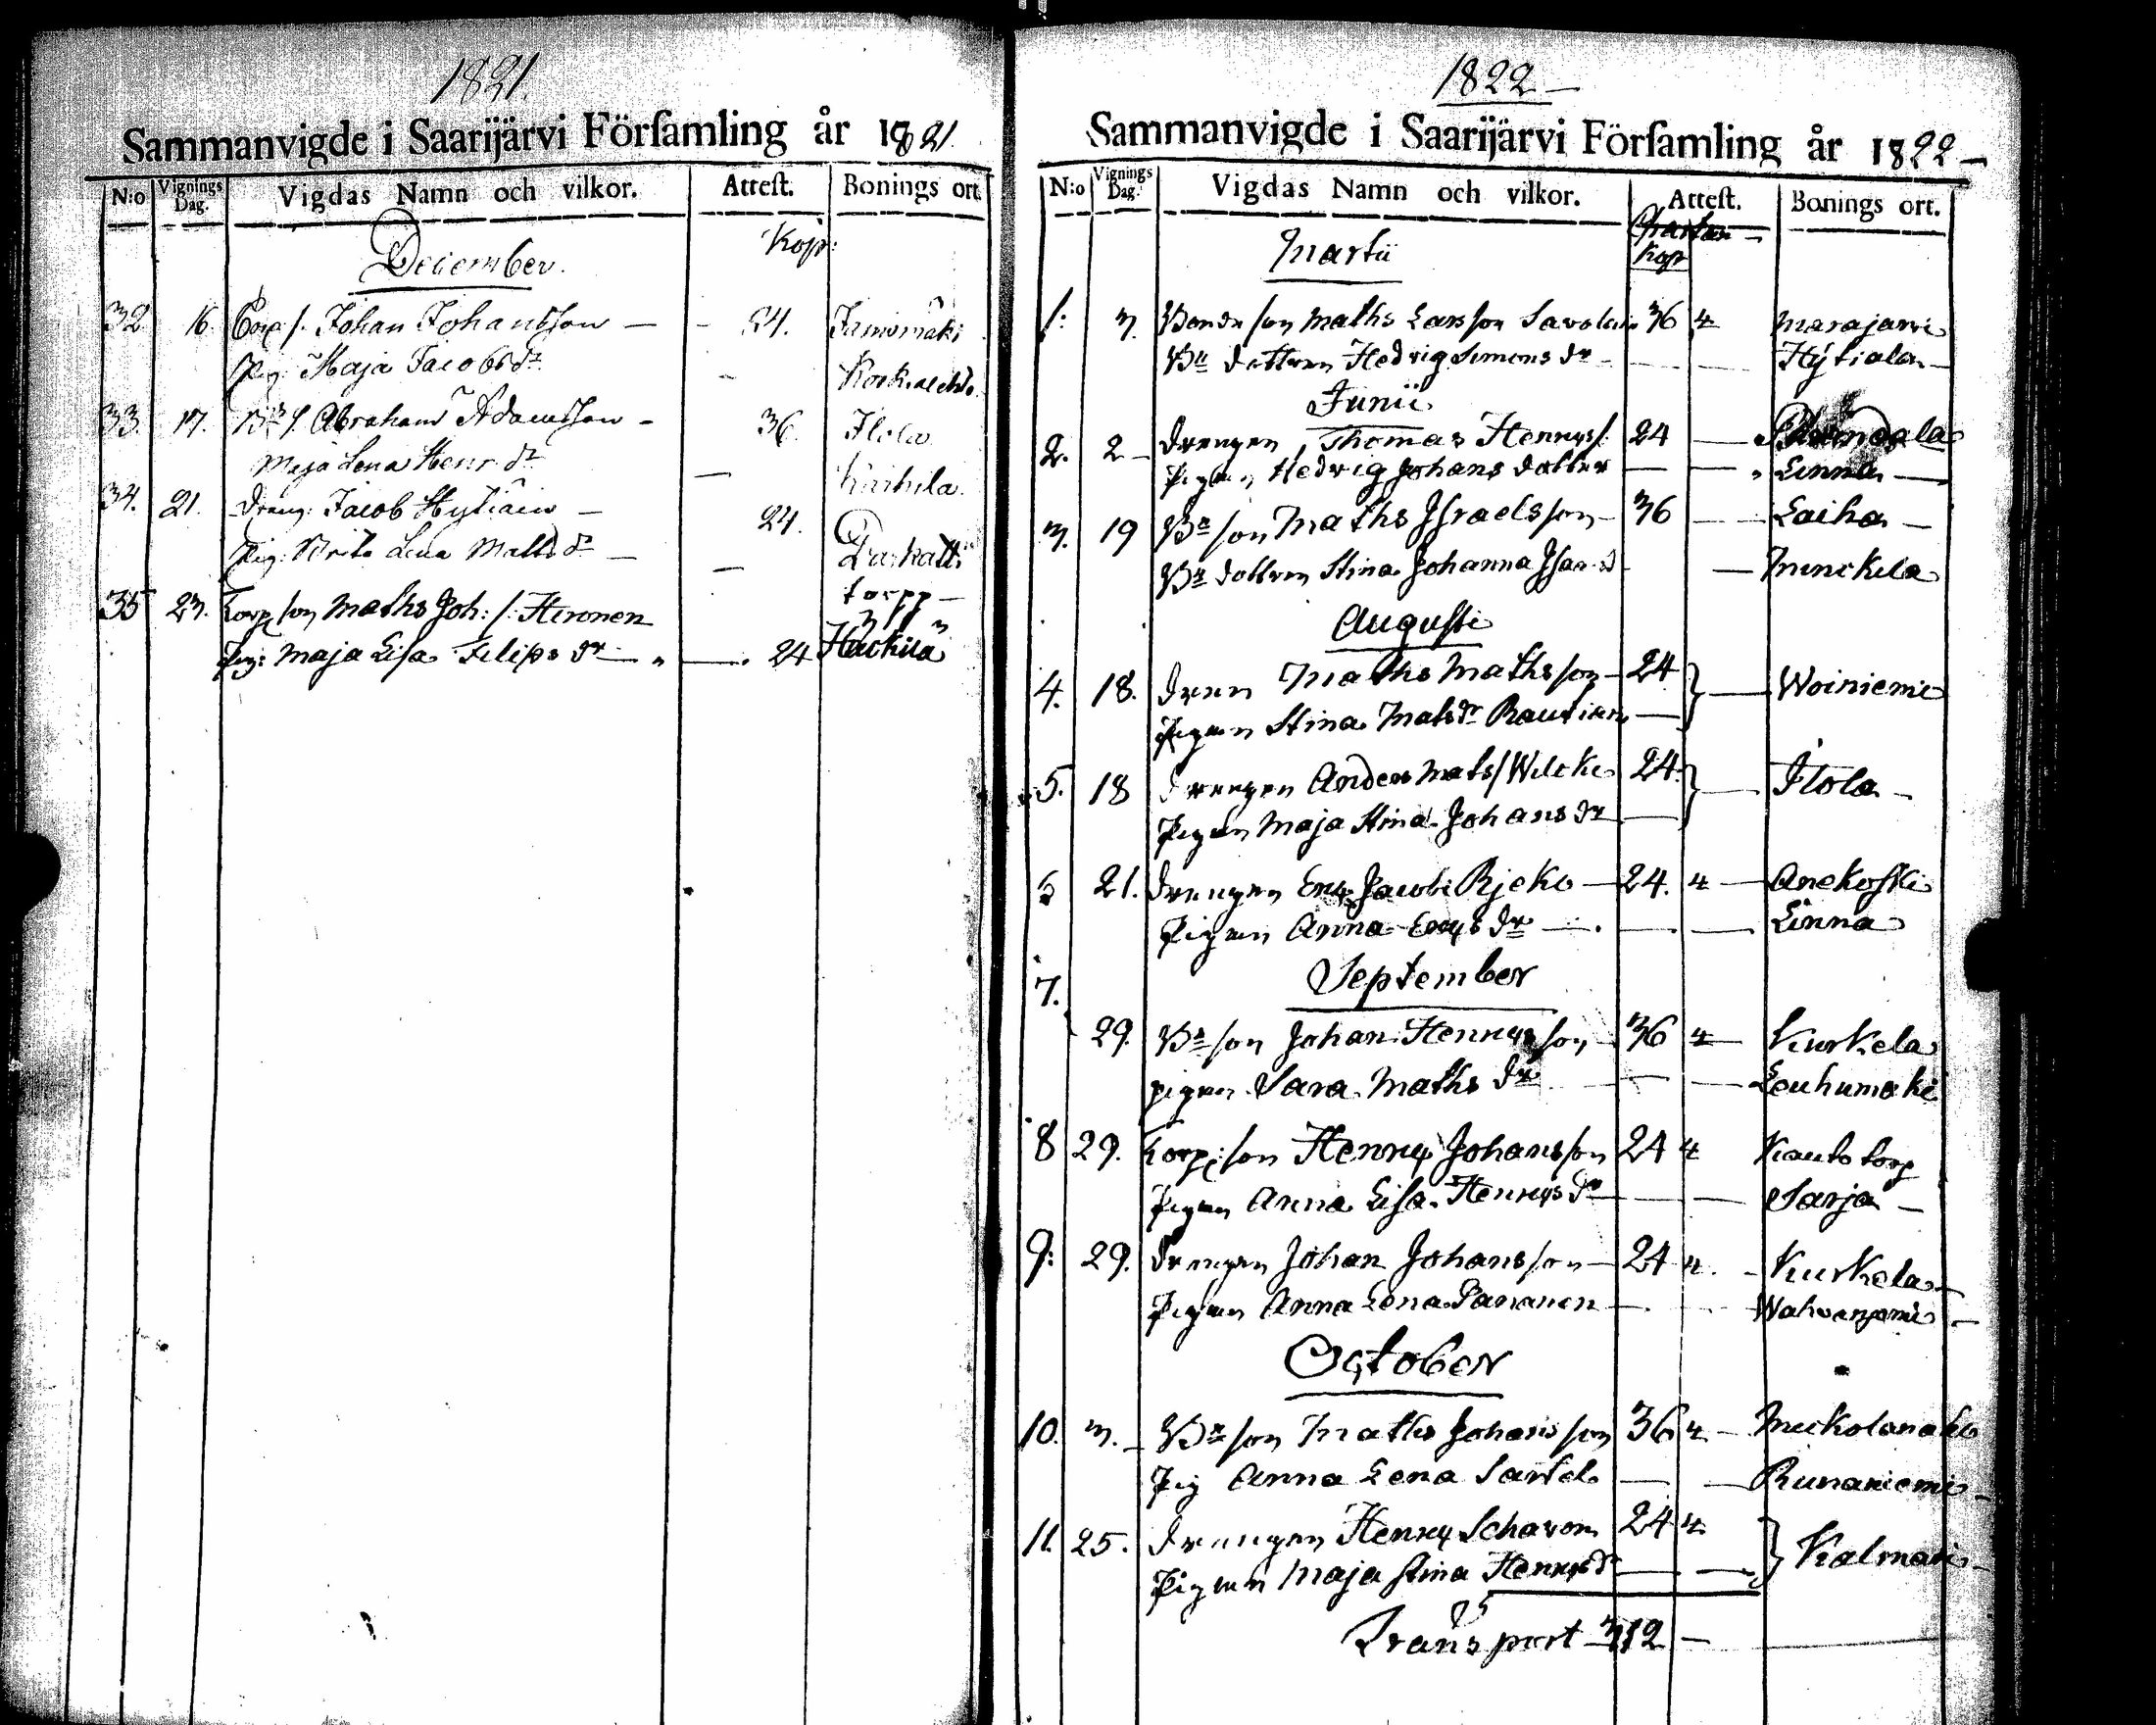 1821.
Sammanvigde i Saarijärvi Församling år 1821.
N:o Vignings Dag. Vigdas Namn och vilkor. Attest. Bonings ort.
December. Kop:
32 16. Torp. s. Johan Johansson — - 24.
Pig: Maja Jacobs dr
33. 17. Bd s. Abraham Adamsson - 36. Ilola
Maja Lena Henr. dr — Karhila.
34. 21. Dreng: Jacob Hytiäin — 24.
Pig: Brita Lena Matts dr — —
torpp —
35 23. Torp son Maths Joh: s: Hironen
Pig: Maja Lisa Filips dr — 24 Häckilä
1822 —
Sammanvigde i Saarijärvi Församling år 1822 —
N:o Vignings Dag. Vigdas Namn och vilkor. Attest. Bonings ort.
Martii Kop
1: 3. Bonde son Maths Larsson Savolain 36 4 Marajarvi
Bd dottren Hedvig Simons dr — Hytiälä —
Junii
2. 2 - Drengen Thomas Henrys s. 24 —
Pigan Hedvig Johans dotter — — Linna —
3. 19 Bd son Maths Israelsson — 36 — Laiha —
Bd dottren Stina Johanna — Minckila
Augusti
4. 18. Dren Maths Mathsson — 24 } — Woiniemi
Pigan Stina Matsdr Rautiain —
5. 18 Drengen Anders Mats s. Wilcki 24. } — Ilola —
Pigan Maja Stina Johans dr —
6 21. Drengen Eric Jacobs Rjeko — 24. 4 — Änekoski
Pigan Anna Erics dr — — — Linna
September
7.
29. Bd son Johan Henrysson — 36 4 — Kurkela
pigan Sara Maths dr — — Louhumäki
8 29. Torp: son Henry Johansson 24 4 Kauto torp
Pigan Anna Lisa Henrys dr — — Sarja —
9: 29. Drengen Johan Johansson — 24 4. - Kurkela —
Pigan Anna Lena Pananen — — Wahvanjemi —
October
10. 3. - Bd son Maths Johansson 36 4 —
Pig Anna Lena Sartel — — Runaniemi —
11. 25. Drengen Henry Schavon 24 4 } Kalmari —
Pigan Maja Stina Henrys dr — —
Transport 312 —